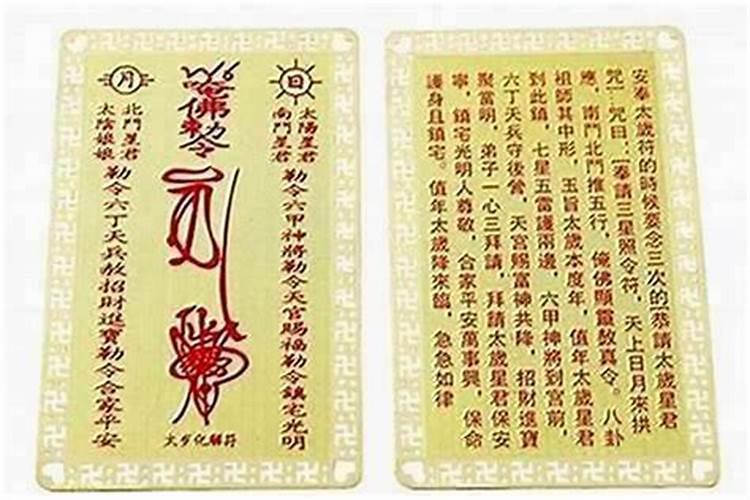 日
月
佛勅令
太陽星君
南鬥星君
勒令六甲神將勒令天官賜福勒令鎮宅光明
北鬥星君
太陰娘娘
勒令六丁天兵敕招財進寶勒令合家平安
太岁化解符
安奉太歲符的時候要念三次的[恭請太歲星君
咒]:咒曰:[奉請三星照令符,天上日月來拱
應,南鬥北鬥推五行,俺佛顯靈敕真令。八卦
祖師其中形,玉旨太歲本度年,值年太歲星君
到此鎮,七星五雷護兩邊,六甲神將到宮前,
六丁天兵守後營,天官賜富神共降,招財進寶
聚當明,弟子一心三拜請,拜請太歲星君保安
寧,鎮宅光明人尊敬,合家平安萬事興,保命
護身且鎮宅。值年太歲降來臨,急急如律